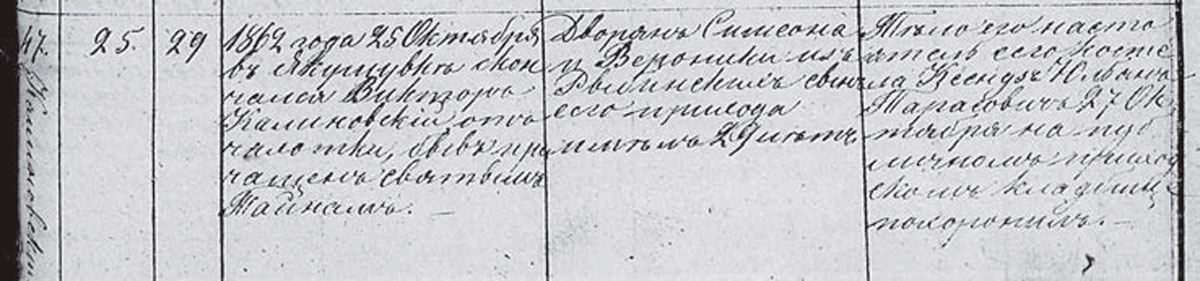 47.
Калиновскій
25.
29
1862 года 25 Октября
въ Якушувкѣ скон
чался Викторъ
Калиновскій отъ
чахотки, бывъ при
чащенъ Святымъ
Тайнамъ. —
Дворянъ Симеона
и Вероники изъ
Рыбинскихъ сынъ
его прихода
имѣлъ 29 лѣтъ.
Тѣло его насто
ятель сего Косте
ла Ксендзъ Юліанъ
Тарасовичъ 27 Ок
тября на пуб
личномъ приход
скомъ кладбищѣ
похоронилъ. —